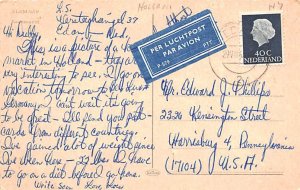 Holland
N-7
Hi Kenny,
This is a picture of a
market in Holland - they are
very interesting to see. I go on
vacation tomorrow to the
Germany. I can't wait it's going
to be great - I'll send you post-
cards from different countries.
I've gained a lot of weight since
I've been here - 22 lbs. I'll have
to go on a diet before I go home.
Write soon. Love
PER LUCHTPOST
PAR AVION
NEDERLAND
40c
Mr. Edward J. Phillips
2326 Kensington Street
Harrisburg 4, Pennsylvania
(17104) U.S.A.